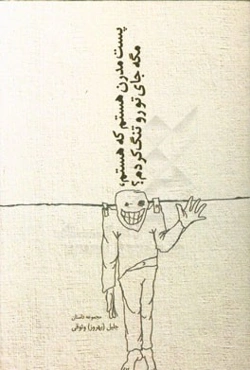 پست مدرن هستم که هستم،
مگه جای تو رو تنگ کردم؟
مجموعه داستان
جلیل (بهروز) وثوقی